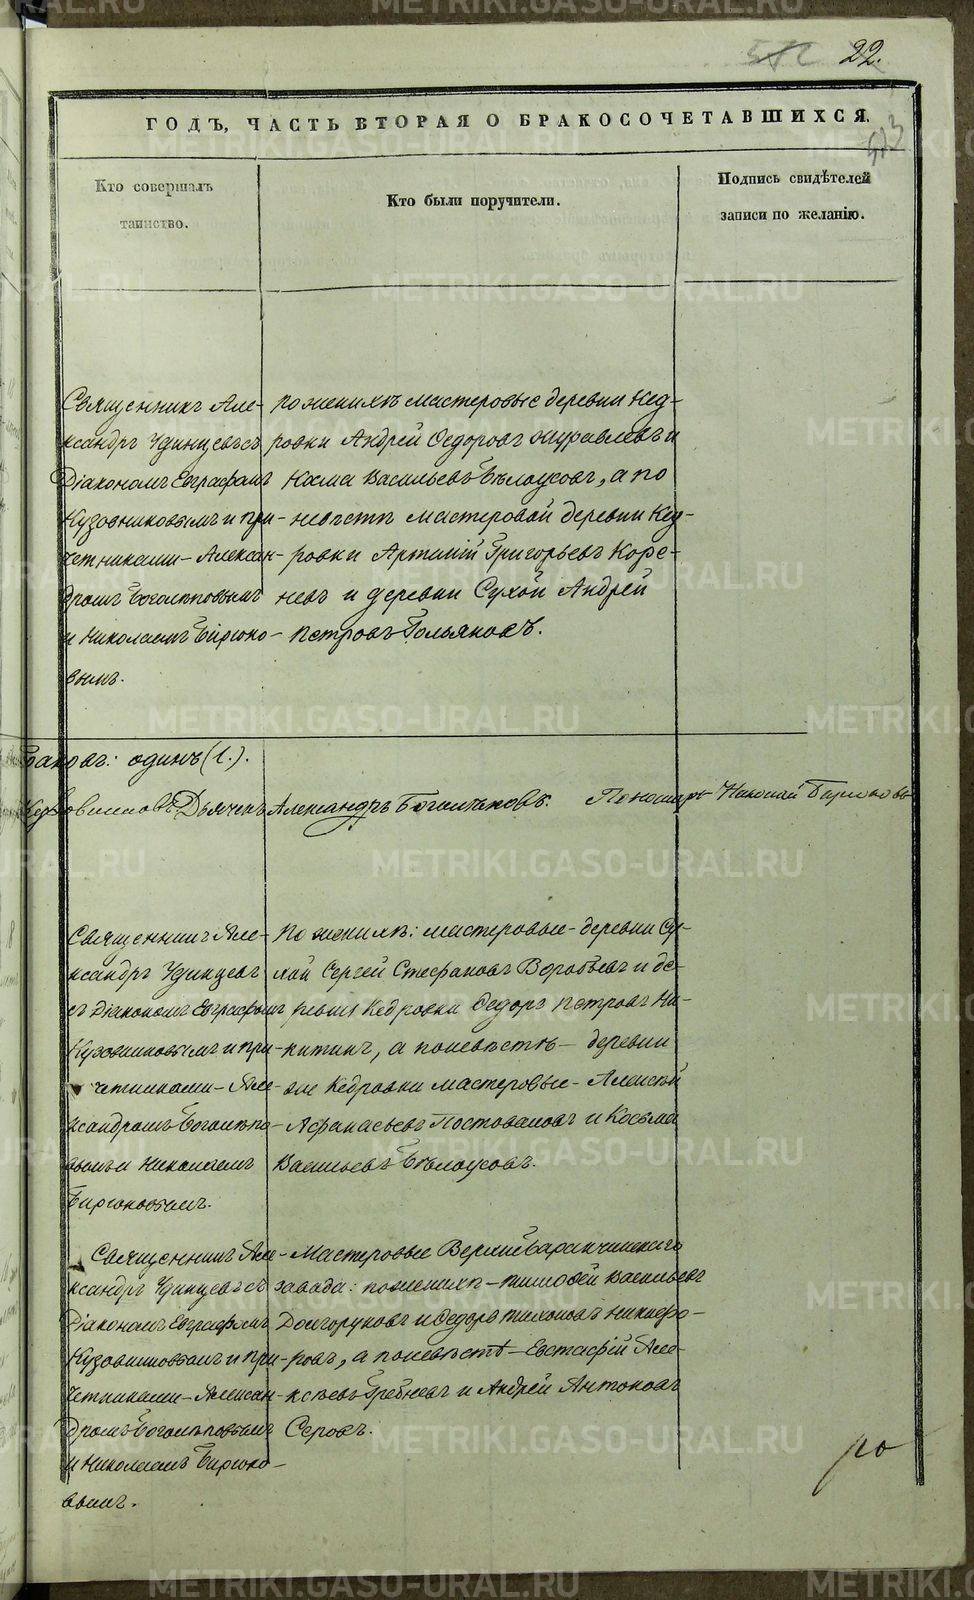 22.
513
ГОДЪ, ЧАСТЬ ВТОРАЯ О БРАКОСОЧЕТАВШИХСЯ.
Кто совершалъ
таинство.
Кто были поручители.
Подпись свидѣтелей
записи по желанію.
Священникъ Але-
ксандръ Удинцевъ съ
Діакономъ Евграфомъ
Кузовниковымъ и при-
четниками - Алексан-
дромъ Боголѣповымъ
и Николаемъ Бирюко-
вымъ.
по женихѣ мастеровые деревни Кед-
ровки Андрей Ѳедоровъ Журавлевъ и
Козма Васильевъ Бѣлоусовъ, а по
невѣстѣ мастеровой деревни Кед-
ровки Артемій Григорьевъ Коре-
невъ и деревни Сухой Андрей
Петровъ Гольяновъ.
браковъ: одинъ (1.).
Кузовниковъ Дьячекъ Александръ Боголѣповъ. Пономарь Николай Бирюковъ
Священникъ Але-
ксандръ Удинцевъ
съ Діакономъ Евграфомъ
Кузовниковымъ и при-
четниками - Але-
ксандромъ Боголѣпо-
вымъ и Николаемъ
Бирюковымъ.
По женихѣ: мастеровые - деревни Су-
хой Сергей Стефановъ Воробьевъ и де-
ревни Кедровки Ѳедоръ Петровъ Ни-
китинъ, а по невѣстѣ - деревни
Кедровки мастеровые - Алексѣй
Афанасьевъ Постоваловъ и Косьма
Васильевъ Бѣлоусовъ.
Священникъ Але-
ксандръ Удинцевъ съ
Діакономъ Евграфомъ
Кузовниковымъ и при-
четниками - Алексан-
дромъ Боголѣповымъ
и Николаемъ Бирюко-
вымъ.
Мастеровые Верхнебаранчинскаго
завода: по женихѣ - Тимофей Васильевъ
Долгоруковъ и Ѳедоръ Тихоновъ Никифо-
ровъ, а по невѣстѣ - Евстафій Але-
ксѣевъ Гребневъ и Андрей Антоновъ
Серовъ.
METRIKI.GASO-URAL.RU